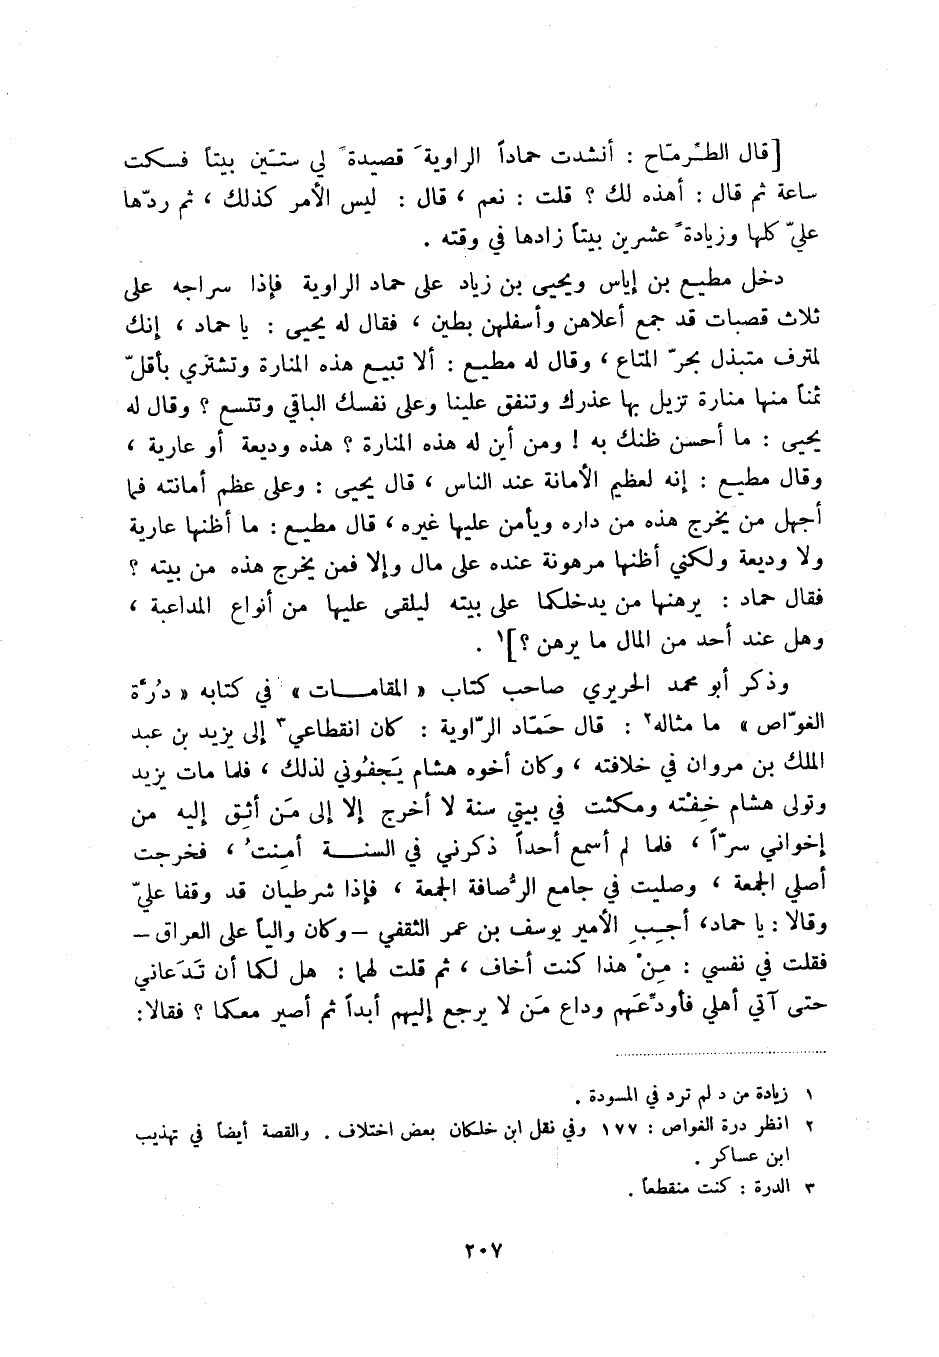 [قال الطِّرمّاح : أنشدت حماداً الراوية َ قصيدة ً لي ستّين بيتاً فسكت
ساعة ثم قال : أهذه لك ؟ قلت : نعم ، قال : ليس الأمر كذلك ، ثم ردّها
عليّ كلها وزيادة ً عشرين بيتاً زادها في وقته .
دخل مطيع بن إياس ويحيى بن زياد على حماد الراوية فإذا سراجه على
ثلاث قصبات قد جمع أعلاهن وأسفلهن بطين ، فقال له يحيى : يا حماد ، إنك
لمترف متبذل بحرّ المتاع ، وقال له مطيع : ألا تبيع هذه المنارة وتشتري بأقلّ
ثمناً منها منارة تزيل بها عذرك وتنفق علينا وعلى نفسك الباقي وتتسع ؟ وقال له
يحيى : ما أحسن ظنك به ! ومن أين له هذه المنارة ؟ هذه وديعة أو عارية ،
وقال مطيع : إنه لعظيم الأمانة عند الناس ، قال يحيى : وعلى عظم أمانته فما
أجهل من يخرج هذه من داره ويأمن عليها غيره ، قال مطيع : ما أظنها عارية
ولا وديعة ولكني أظنها مرهونة عنده على مال وإلا فمن يخرج هذه من بيته ؟
فقال حماد : يرهنها من يدخلكما على بيته ليلقى عليها من أنواع المداعبة ،
وهل عند أحد من المال ما يرهن ؟]١ .
وذكر أبو محمد الحريري صاحب كتاب « المقامات » في كتابه « دُرَّة
الغوّاص » ما مثاله٢ : قال حَمّاد الرّاوية : كان انقطاعي٣ إلى يزيد بن عبد
الملك بن مروان في خلافته ، وكان أخوه هشام يَجفُوني لذلك ، فلما مات يزيد
وتولى هشام خِفْته ومكثت في بيتي سنة لا أخرج إلا إلى مَن أثِق إليه من
إخواني سرّاً ، فلما لم أسمع أحداً ذكرني في السنة أمِنتُ ، فخرجت
أصلي الجمعة ، وصليت في جامع الرُّصافة الجمعة ، فإذا شرطيان قد وقفا عليّ
وقالا : يا حماد، أجِبِ الأمير يوسف بن عمر الثقفي – وكان والياً على العراق –
فقلت في نفسي : مِنْ هذا كنت أخاف ، ثم قلت لهما : هل لكما أن تَدَعاني
حتى آتي أهلي فأودِّعَهم وداع مَن لا يرجع إليهم أبداً ثم أصير معكما ؟ فقالا:
١ زيادة من د لم ترد في المسودة .
٢ انظر درة الغواص : ١٧٧ وفي نقل ابن خلكان بعض اختلاف . والقصة أيضاً في تهذيب
ابن عساكر .
٣ الدرة : كنت منقطعاً .
٢٠٧